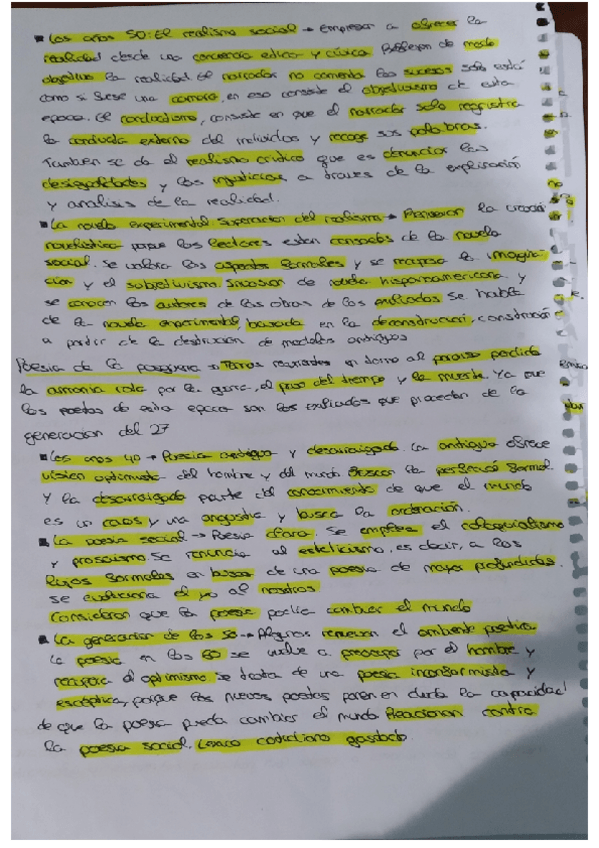 Los años 50: El realismo social → Empiezan a ofrecer la
realidad desde una conciencia etica y cívica. Reflejan de modo
objetivo la realidad. El narrador no comenta los sucesos solo está
como si fuese una camara, en eso consiste el objetivismo de esta
epoca. El conductismo, consiste en que el narrador solo registra
la conducta externa del individuo y recoge sus palabras.
Tambien se da el realismo critico que es denunciar las
desigualdades y las injusticias a traves de la explicación
y analisis de la realidad.
La novela experimental superacion del realismo → Renuevan la creación
novelistica porque los lectores estan cansados de la novela
social. Se valora los aspectos formales y se recupera la imagina-
cion y el subjetivismo. Invasion de novela hispanoamericana y
se conocen los autores de las obras de los exiliados. Se habla
de la novela experimental, basada en la deconstrucción, construcción
a partir de la destruccion de modelos antiguos
Poesia de la posguerra → Temas recurrentes en torno al paraiso perdido
la armonia rota por la guerra, el paso del tiempo y la muerte. Ya que
los poetas de esta epoca son los exiliados que proceden de la
generacion del 27
Los años 40 → Poesia arraigada y desarraigada. La ofrece
vision optimista del hombre y del mundo. Buscan la perfeccion formal.
Y la desarraigada parte del conocimiento de que el mundo
es un caos y una angustia y busca la ordenación.
La poesia social → Poesia clara. Se emplea el coloquialismo
y prosaismo. Se renuncia al esteticismo, es decir, a los
lujos formales en busca de una poesia de mayor profundidad.
se evoluciona el yo al nosotros
Consideran que la poesia podia cambiar el mundo
La generacion de los 50 → Algunos renuevan el ambiente poetico
La poesia en los 60 se vuelve a preocupar por el hombre y
recupera el optimismo. Se trata de una poesia inconformista y
escéptica, porque los nuevos poetas ponen en duda la capacidad
de que la poesia pueda cambiar el mundo. Reaccionan contra
la poesia social. Lexico cotidiano gastado